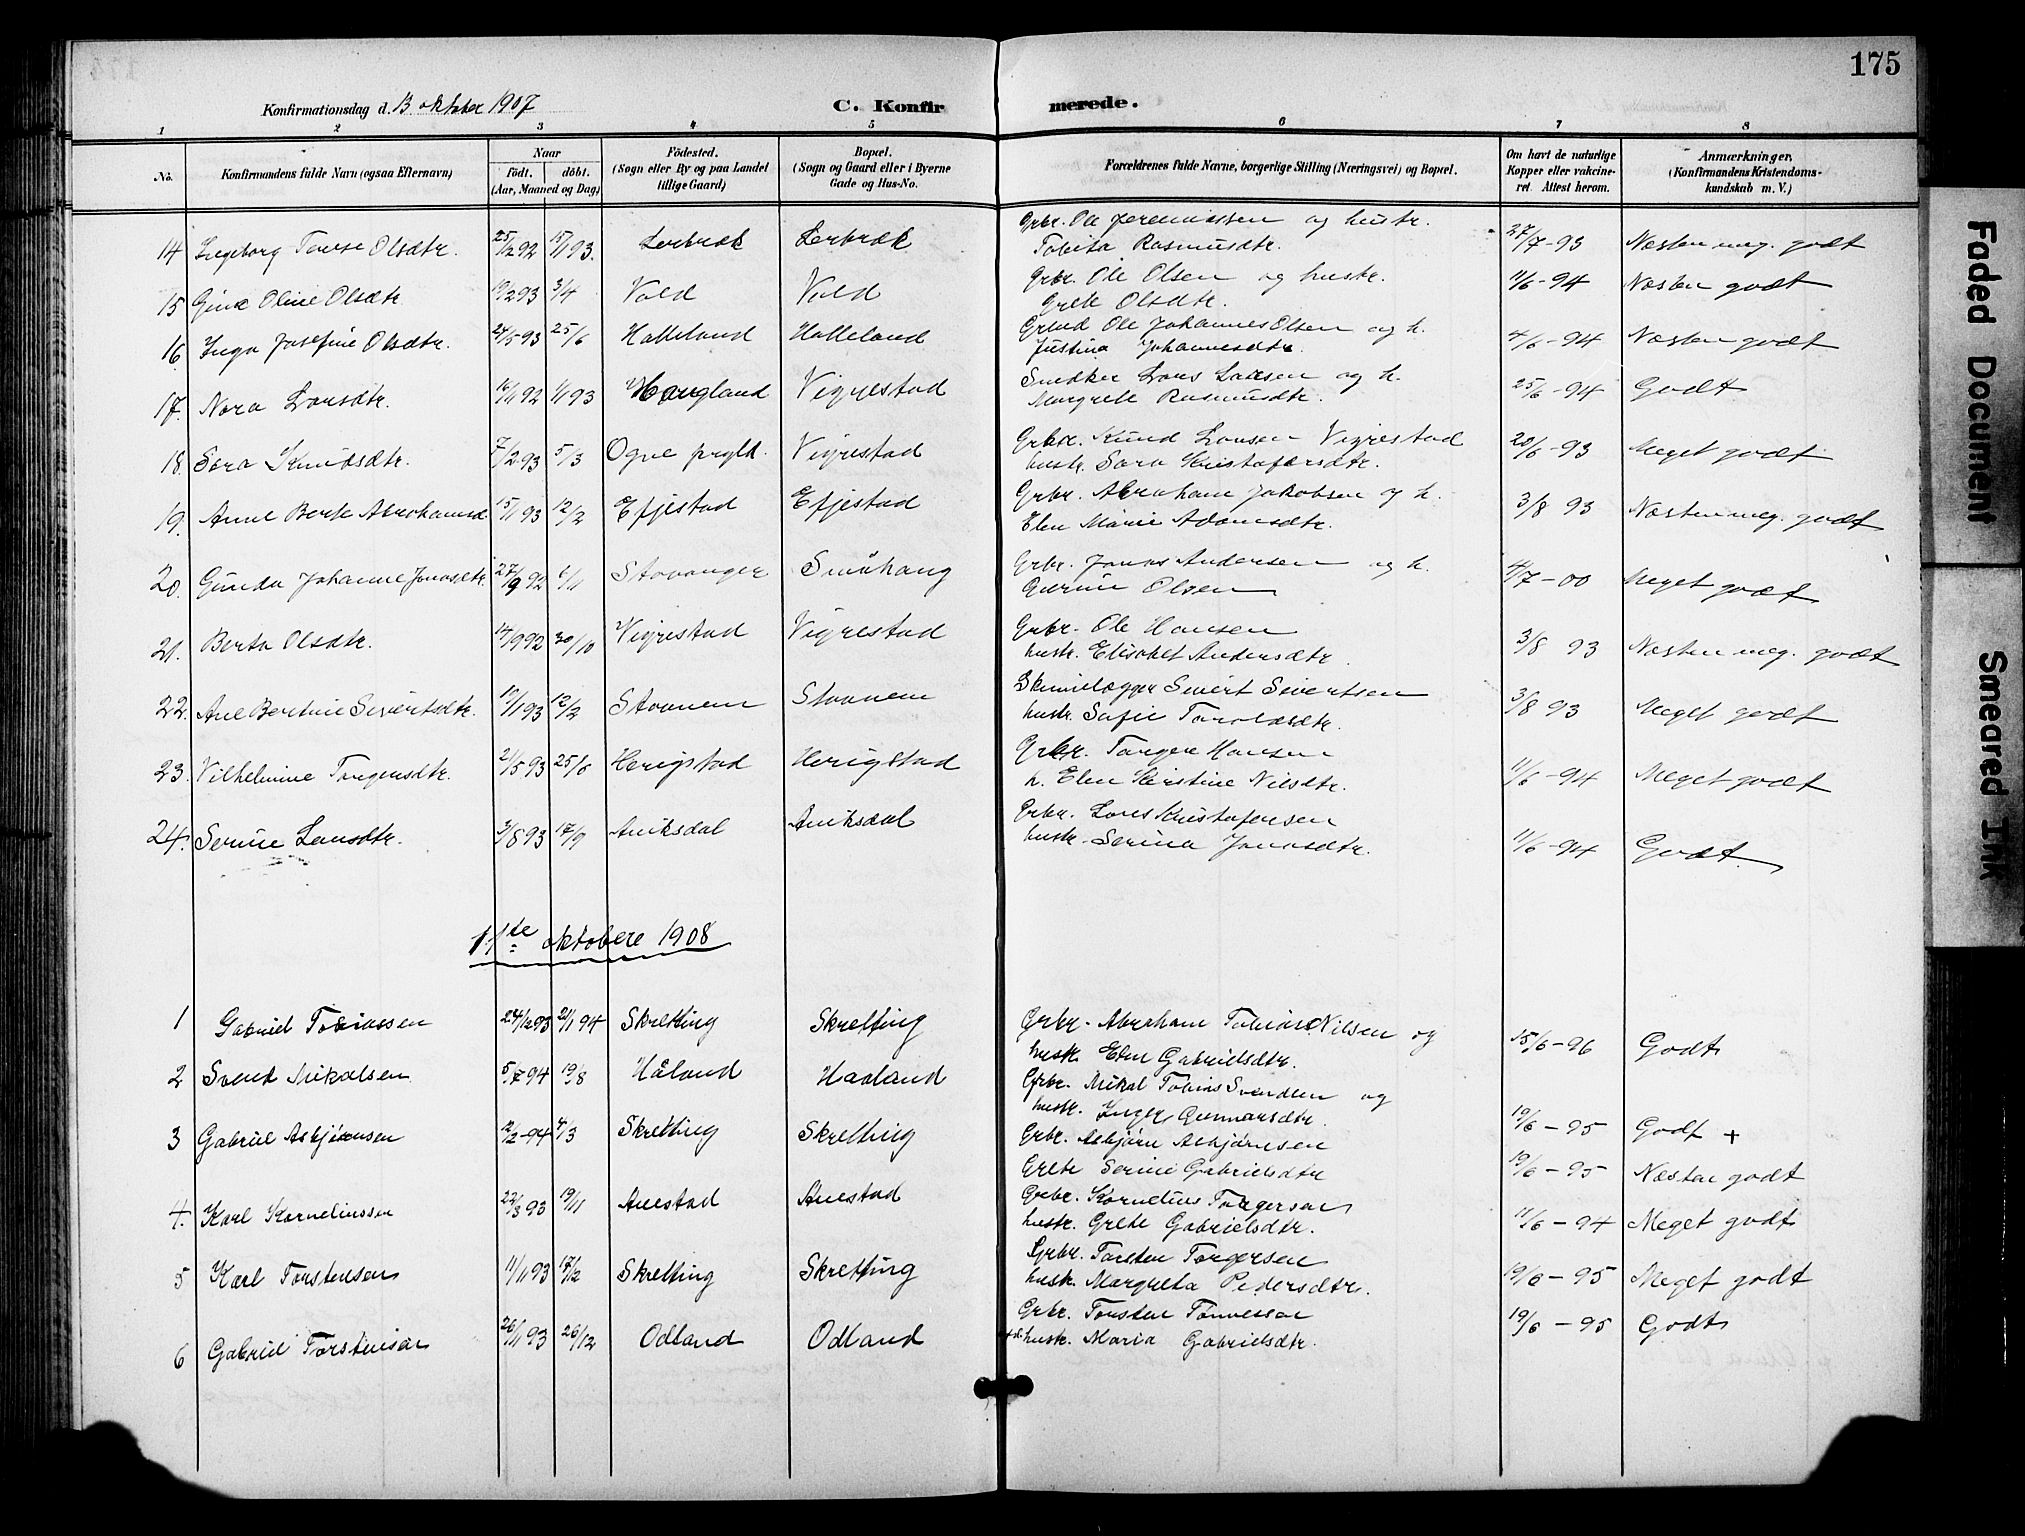 175
Konfirmationsdag d. 13 oktober 1907
C. Konfirmerede.
1 2 3 4 5 6 7 8
No.
Konfirmandens fulde Navn (ogsaa Efternavn)
Naar
født. døbt.
(Aar, Maaned og Dag)
Fødested.
(Sogn eller By og paa Landet
tillige Gaard)
Bopæl.
(Sogn og Gaard eller i Byerne
Gade og Hus-No.
Forældrenes fulde Navne, borgerlige Stilling (Næringsvei) og Bopæl.
Om havt de naturlige
Kopper eller vakcine-
ret. Attest herom.
Anmærkninger,
(Konfirmandens Kristendoms-
kundskab m. V.)
14 Ingeborg Tomse Olsdtr. 25/12 92 15/1 93. Lerbræk Lerbræk Grbr. Ole Jeremiassen og hustr. 27/7-93 Næsten meg. godt
Tobita Rasmusdtr.
15 Gine Oline Olsdtr 19/2 93 3/4 Vold Vold Grbr. Ole Olsen og hustr. 11/6-94 Næsten godt
Grete Olsdtr.
16. Inga Josefine Olsdtr. 24/5 93 25/6 Halleland Halleland Ole Johannes Olsen og h. 4/6-94 Næsten godt
Justina Johannesdtr.
17. Nora Larsdtr. 16/11 92 1/1 93 Haugland Vigrestad Snedker Lars Larsen og h. 25/6-94 Godt
Margrete Rasmusdtr.
18. Sara Knudsdtr. 7/2 93 5/3 Ogne prgld. Vigrestad Grbr. Knud Larsen Vigrestad 20/6-93 Meget godt
hustr. Sara Kristofersdtr.
19. Anne Berte Abrahamsd. 15/1 93 12/2 Efjestad Efjestad Grbr. Abraham Jakobsen og h. 3/8 93 Næsten meg. godt
Elen Marie Adamsdtr.
20. Gunda Johanne Jonasdtr. 27/9 92 6/11 Stavanger Småhaug Grbr. Jonas Andersen og h. 4/7-00 Meget godt
Gurine Olsen
21. Berta Olsdtr. 14/9 92 30/10 Vigrestad Vigrestad Grbr. Ole Hansen 3/8 93 Næsten meg. godt
hustr. Elisabet Andersdtr.
22. Ane Bertine Sivertsdtr. 10/1 93 12/2 Stavnem Stavnem Skinnelægger Sivert Sivertsen 3/8 93 Meget godt
hustr. Sofie
23. Vilhelmine Torgersdtr. 21/5 93 25/6 Herigstad Herigstad Grbr. Torger Hansen 11/6-94 Meget godt
h. Elen Kirstine Nilsdtr.
24. Serine Larsdtr. 3/8 93 17/9 Aniksdal Aniksdal Grbr. Lars Kristofersen 11/6-94 Godt
hustr. Serina Jonasdtr.
11te oktobere 1908
1 Gabriel Tobiassen 24/12 93 21/1 94 Skretting Skretting Grbr. Abraham Tobias Nilsen og 15/6-96 Godt
hustr. Elen Gabrielsdtr.
2 Svend Mikalsen 5/7 94 19/8 Håland Haaland Grbr. Mikal Tobias Svendsen og 19/6-95 Godt +
hustr. Inger Gunnarsdtr.
3 Gabriel Asbjørnsen 12/2-94 4/3 Skretting Skretting Grbr. Asbjørn Asbjørnsen 19/6-95 Næsten godt
Grete Serine Gabrielsdtr
4. Karl Korneliussen 22/3 93 19/11 Auestad Auestad Grbr. Kornelius Torgersen 11/6-94 Meget godt
hustr. Grete Gabrielsdtr.
5 Karl Torstensen 11/11 93 17/12 Skretting Skretting Grbr. Torsten Torgersen 19/6-95 Meget godt
hustr. Margreta Pedersdtr.
6 Gabriel Torstensen 26/11 93 26/12 Odland Odland Grbr. Torsten Tønnessen 19/6-95 Godt
hustr. Maria Gabrielsdtr.
Faded Document
Smeared Ink